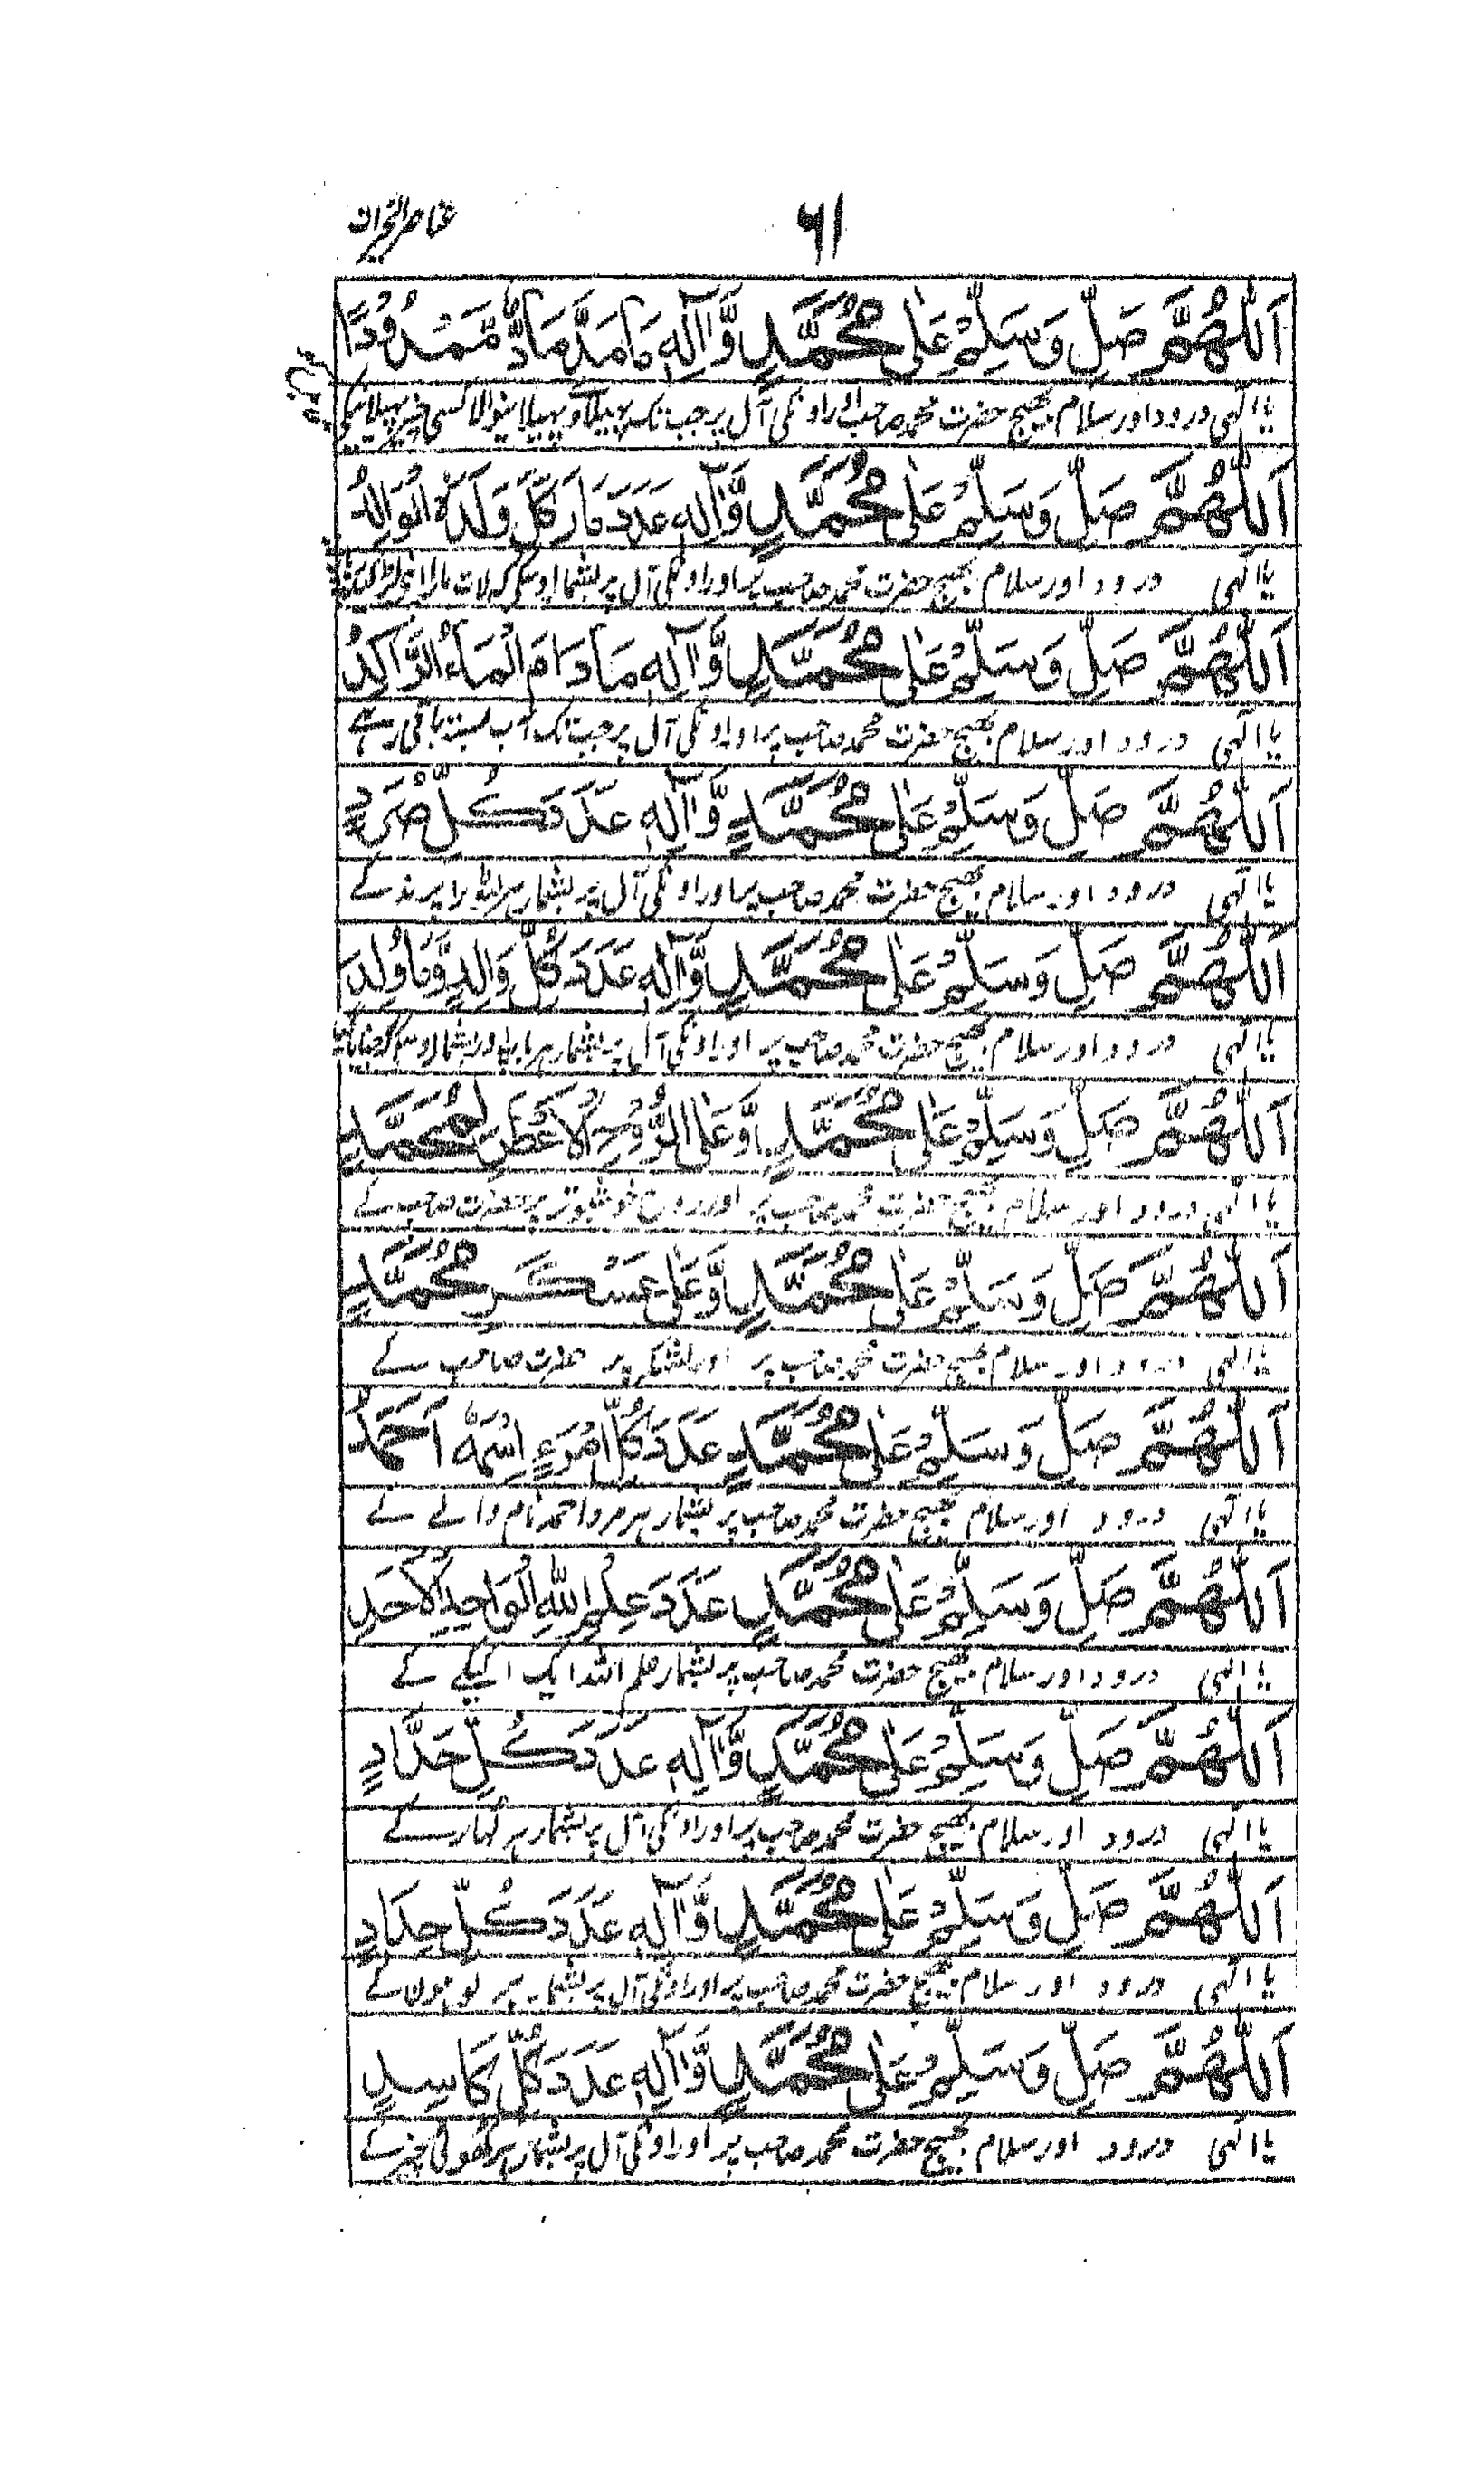 ۶۱
اَللّٰهُمَّ صَلِّ وَسَلِّمْ عَلٰی مُحَمَّدٍ وَّاٰلِهٖ مَا مَدَّ مَادٌّ مَّمْدُوْدًا
یا الٰہی درود اور سلام بھیج حضرت محمد صاحب اور اونکی آل پر جب تک
اَللّٰهُمَّ صَلِّ وَسَلِّمْ عَلٰی مُحَمَّدٍ وَّاٰلِهٖ عَدَدَ وَلَدَهُ الْوَالِدُ
یا الٰہی درود اور سلام بھیج حضرت محمد صاحب پر اور اونکی آل پر بشمار
اَللّٰهُمَّ صَلِّ وَسَلِّمْ عَلٰی مُحَمَّدٍ وَّاٰلِهٖ مَادَامَ الْمَآءُ الرَّاكِدُ
یا الٰہی درود اور سلام بھیج حضرت محمد صاحب پر اور اونکی آل پر جب تک آب بستہ باقی رہے
اَللّٰهُمَّ صَلِّ وَسَلِّمْ عَلٰی مُحَمَّدٍ وَّاٰلِهٖ عَدَدَ كُلِّ صُرَدٍ
یا الٰہی درود اور سلام بھیج حضرت محمد صاحب پر اور اونکی آل پر بشمار ہر لٹورا پرند کے
اَللّٰهُمَّ صَلِّ وَسَلِّمْ عَلٰی مُحَمَّدٍ وَّاٰلِهٖ عَدَدَ كُلِّ وَالِدٍ وَّمَا وُلِدَ
یا الٰہی درود اور سلام بھیج حضرت محمد صاحب پر اور اونکی آل پر بشمار ہر باپ اور بشمار
اَللّٰهُمَّ صَلِّ وَسَلِّمْ عَلٰی مُحَمَّدٍ وَّعَلَی الرُّوْحِ الْاَعْطَرِ لِمُحَمَّدٍ
یا الٰہی درود اور سلام بھیج حضرت محمد صاحب پر اور روح خوشبوتر پر حضرت صاحب کے
اَللّٰهُمَّ صَلِّ وَسَلِّمْ عَلٰی مُحَمَّدٍ وَّعَلٰی عَسْكَرِ مُحَمَّدٍ
یا الٰہی درود اور سلام بھیج حضرت محمد صاحب پر اور لشکر پر حضرت صاحب کے
اَللّٰهُمَّ صَلِّ وَسَلِّمْ عَلٰی مُحَمَّدٍ عَدَدَ كُلِّ امْرَءٍ اِسْمُهٗ اَحْمَدُ
یا الٰہی درود اور سلام بھیج حضرت محمد صاحب پر بشمار ہر مرد احمد نام والے کے
اَللّٰهُمَّ صَلِّ وَسَلِّمْ عَلٰی مُحَمَّدٍ عَدَدَ عِلْمِ اللّٰهِ الْوَاحِدِ الْاَحَدِ
یا الٰہی درود اور سلام بھیج حضرت محمد صاحب پر بشمار علم اللہ ایک اکیلے کے
اَللّٰهُمَّ صَلِّ وَسَلِّمْ عَلٰی مُحَمَّدٍ وَّاٰلِهٖ عَدَدَ كُلِّ حَدَّادٍ
یا الٰہی درود اور سلام بھیج حضرت محمد صاحب پر اور اونکی آل پر بشمار ہر لہار کے
اَللّٰهُمَّ صَلِّ وَسَلِّمْ عَلٰی مُحَمَّدٍ وَّاٰلِهٖ عَدَدَ كُلِّ حِدَادٍ
یا الٰہی درود اور سلام بھیج حضرت محمد صاحب پر اور اونکی آل پر بشمار ہر لوہون کے
اَللّٰهُمَّ صَلِّ وَسَلِّمْ عَلٰی مُحَمَّدٍ وَّاٰلِهٖ عَدَدَ كُلِّ كَاسِدٍ
یا الٰہی درود اور سلام بھیج حضرت محمد صاحب پر اور اونکی آل پر بشمار ہر کھوٹی چیز کے